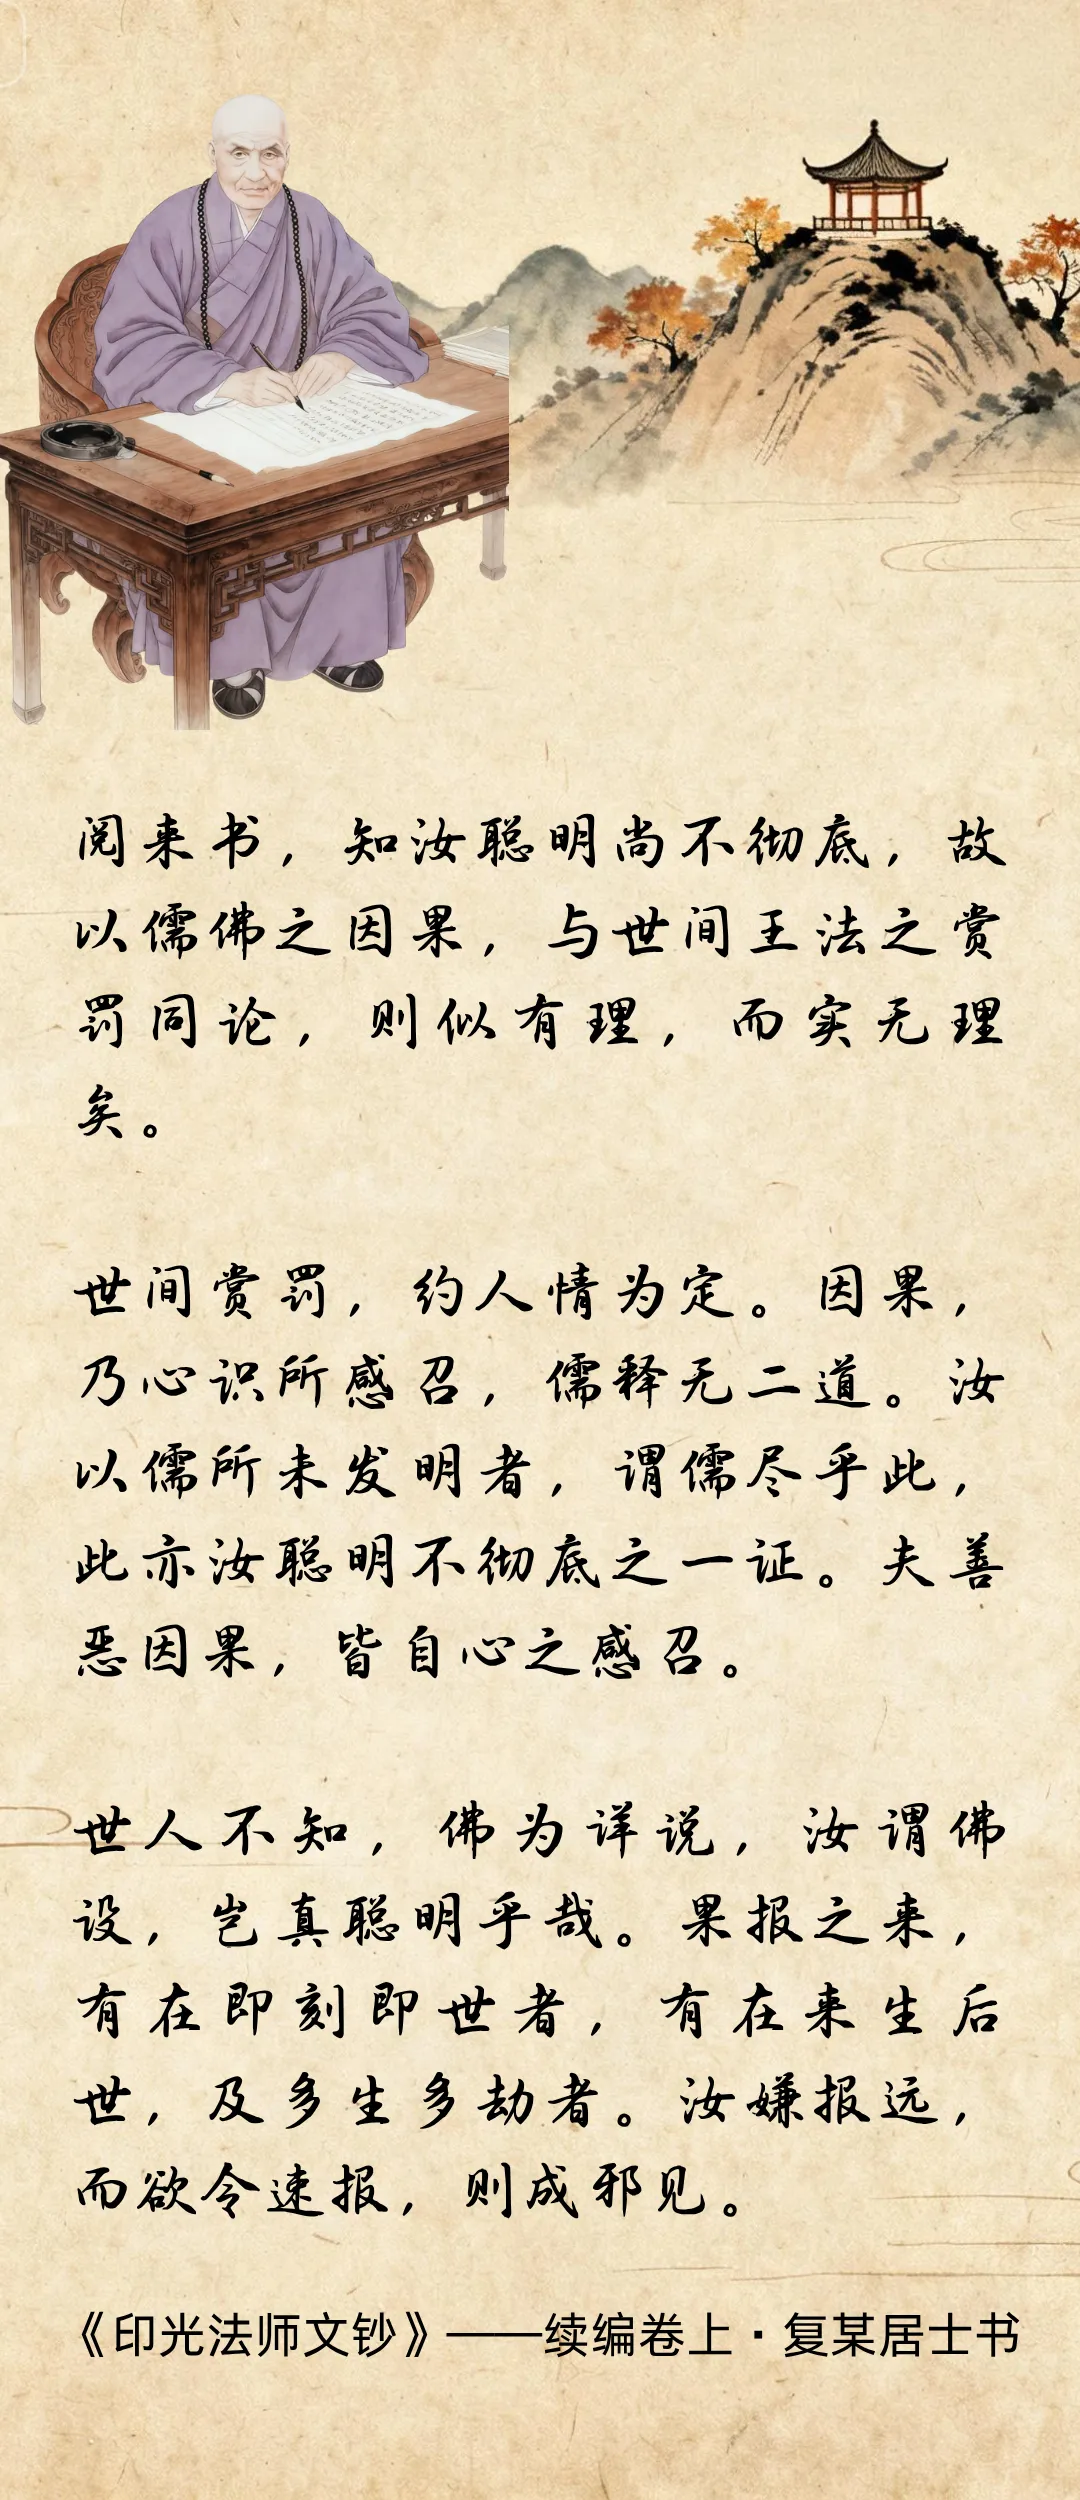 阅来书，知汝聪明尚不彻底，故
以儒佛之因果，与世间王法之赏
罚同论，则似有理，而实无理
矣。
世间赏罚，约人情为定。因果，
乃心识所感召，儒释无二道。汝
以儒所未发明者，谓儒尽乎此，
此亦汝聪明不彻底之一证。夫善
恶因果，皆自心之感召。
世人不知，佛为详说，汝谓佛
设，岂真聪明乎哉。果报之来，
有在即刻即世者，有在来生后
世，及多生多劫者。汝嫌报远，
而欲令速报，则成邪见。
《印光法师文钞》——续编卷上·复某居士书